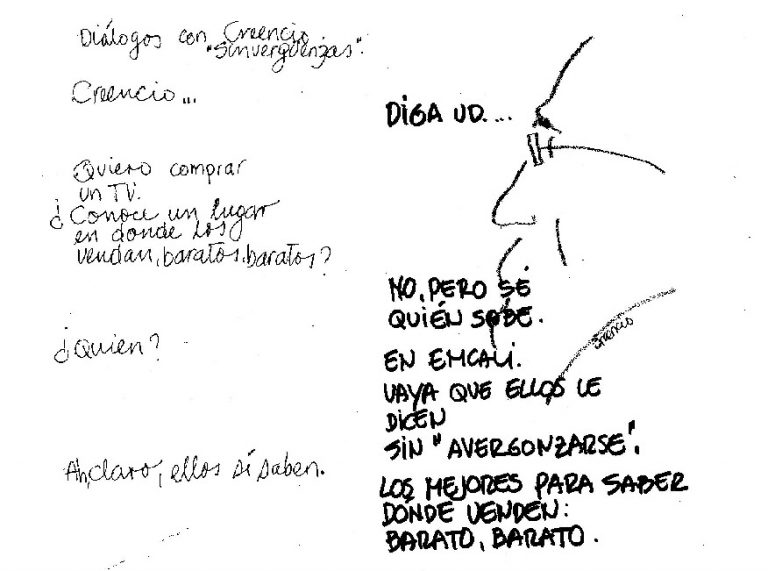 Diálogos con Creencio
"Sinvergüenzas".
Creencio...
DIGA UD....
Quiero comprar
un TV.
¿Conoce un lugar
en donde los
vendan, baratos, baratos?
NO, PERO SÉ
QUIÉN SABE.
¿Quien?
EN EMCALI.
VAYA QUE ELLOS LE
DICEN
SIN "AVERGONZARSE".
Ah, claro, ellos sí saben.
LOS MEJORES PARA SABER
DÓNDE VENDEN:
BARATO, BARATO.
creencio